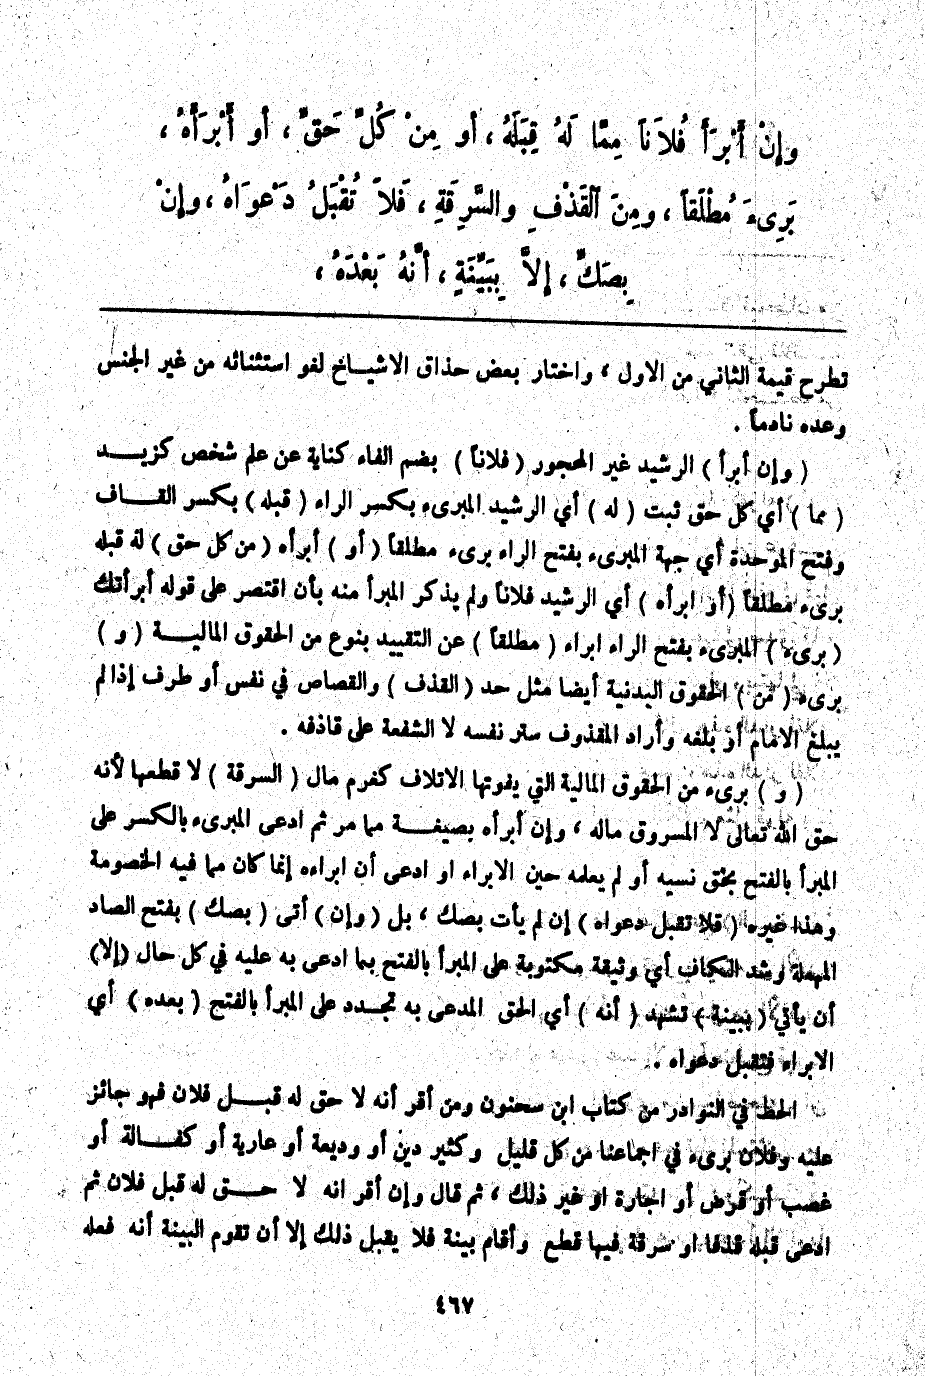 وإنْ أَبْرَأَ فُلاَناً مِمَّا لَهُ قِبَلَهُ ، أو مِنْ كُلِّ حَقٍّ ، أو أَبْرَأَهُ ،
بَرِىءَ مُطْلَقاً ، ومِنَ ٱلْقَذْفِ والسَّرِقَةِ ، فَلاَ تُقْبَلُ دَعْوَاهُ ، وإنْ
بِصَكٍّ ، إلاَّ بِبَيِّنَةٍ ، أنَّهُ بَعْدَهُ ،
تطرح قيمة الثاني من الاول ، واختار بعض حذاق الاشيـاخ لغو استثنائه من غير الجنس
وعده نادماً .
( وإن أبرأ ) الرشيد غير المحجور ( فلاناً ) بضم الفاء كناية عن علم شخص كزيـــد
( مما ) أي كل حق ثبت ( له ) أي الرشيد المبرىء بكسر الراء ( قبله ) بكسر القـــاف
وفتح الموحدة أي جهة المبرىء بفتح الراء برىء مطلقاً ( أو ) أبرأه ( من كل حق ) له قبله
برىء مطلقاً ( أو ابرأه ) أي الرشيد فلاناً ولم يذكر المبرأ منه بأن اقتصر على قوله أبرأتك
( برىء ) المبرىء بفتح الراء ابراء ( مطلقاً ) عن التقييد بنوع من الحقوق الماليـــة ( و )
برىء ( من ) الحقوق البدنية أيضا مثل حد ( القذف ) والقصاص في نفس أو طرف إذا لم
يبلغ الامام أو بلغه وأراد المقذوف ستر نفسه لا الشفعة على قاذفه .
( و ) برىء من الحقوق المالية التي يفوتها الاتلاف كغرم مال ( السرقة ) لا قطعها لأنه
حق الله تعالى لا المسروق ماله ، وإن أبرأه بصيغـــة مما مر ثم ادعى المبرىء بالكسر على
المبرأ بالفتح بحق نسيه أو لم يعلمه حين الابراء او ادعى أن ابراءه إنما كان مما فيه الخصومة
وهذا غيره ( فلا تقبل دعواه ) إن لم يأت بصك ، بل ( وإن ) أتى ( بصك ) بفتح الصاد
المهملة وشد الكاف أي وثيقة مكتوبة على المبرأ بالفتح بما ادعى به عليه في كل حال (إلا)
أن يأتي ( ببينة ) تشهد ( أنه ) أي الحق المدعى به تجـــدد على المبرأ بالفتح ( بعده ) أي
الابراء فتقبل دعواه .
الحط في النوادر من كتاب ابن سحنون ومن أقر أنه لا حق له قبـــل فلان فهو جائز
عليه وفلان برىء في اجماعنا من كل قليل وكثير دين أو وديعة أو عارية أو كفـــالة أو
غصب أو قرض أو اجارة او غير ذلك ، ثم قال وإن أقر انه لا حـــق له قبل فلان ثم
ادعى قبله قذفا او سرقة فيها قطع وأقام بينة فلا يقبل ذلك إلا أن تقوم البينة أنه فعله
٤٦٧